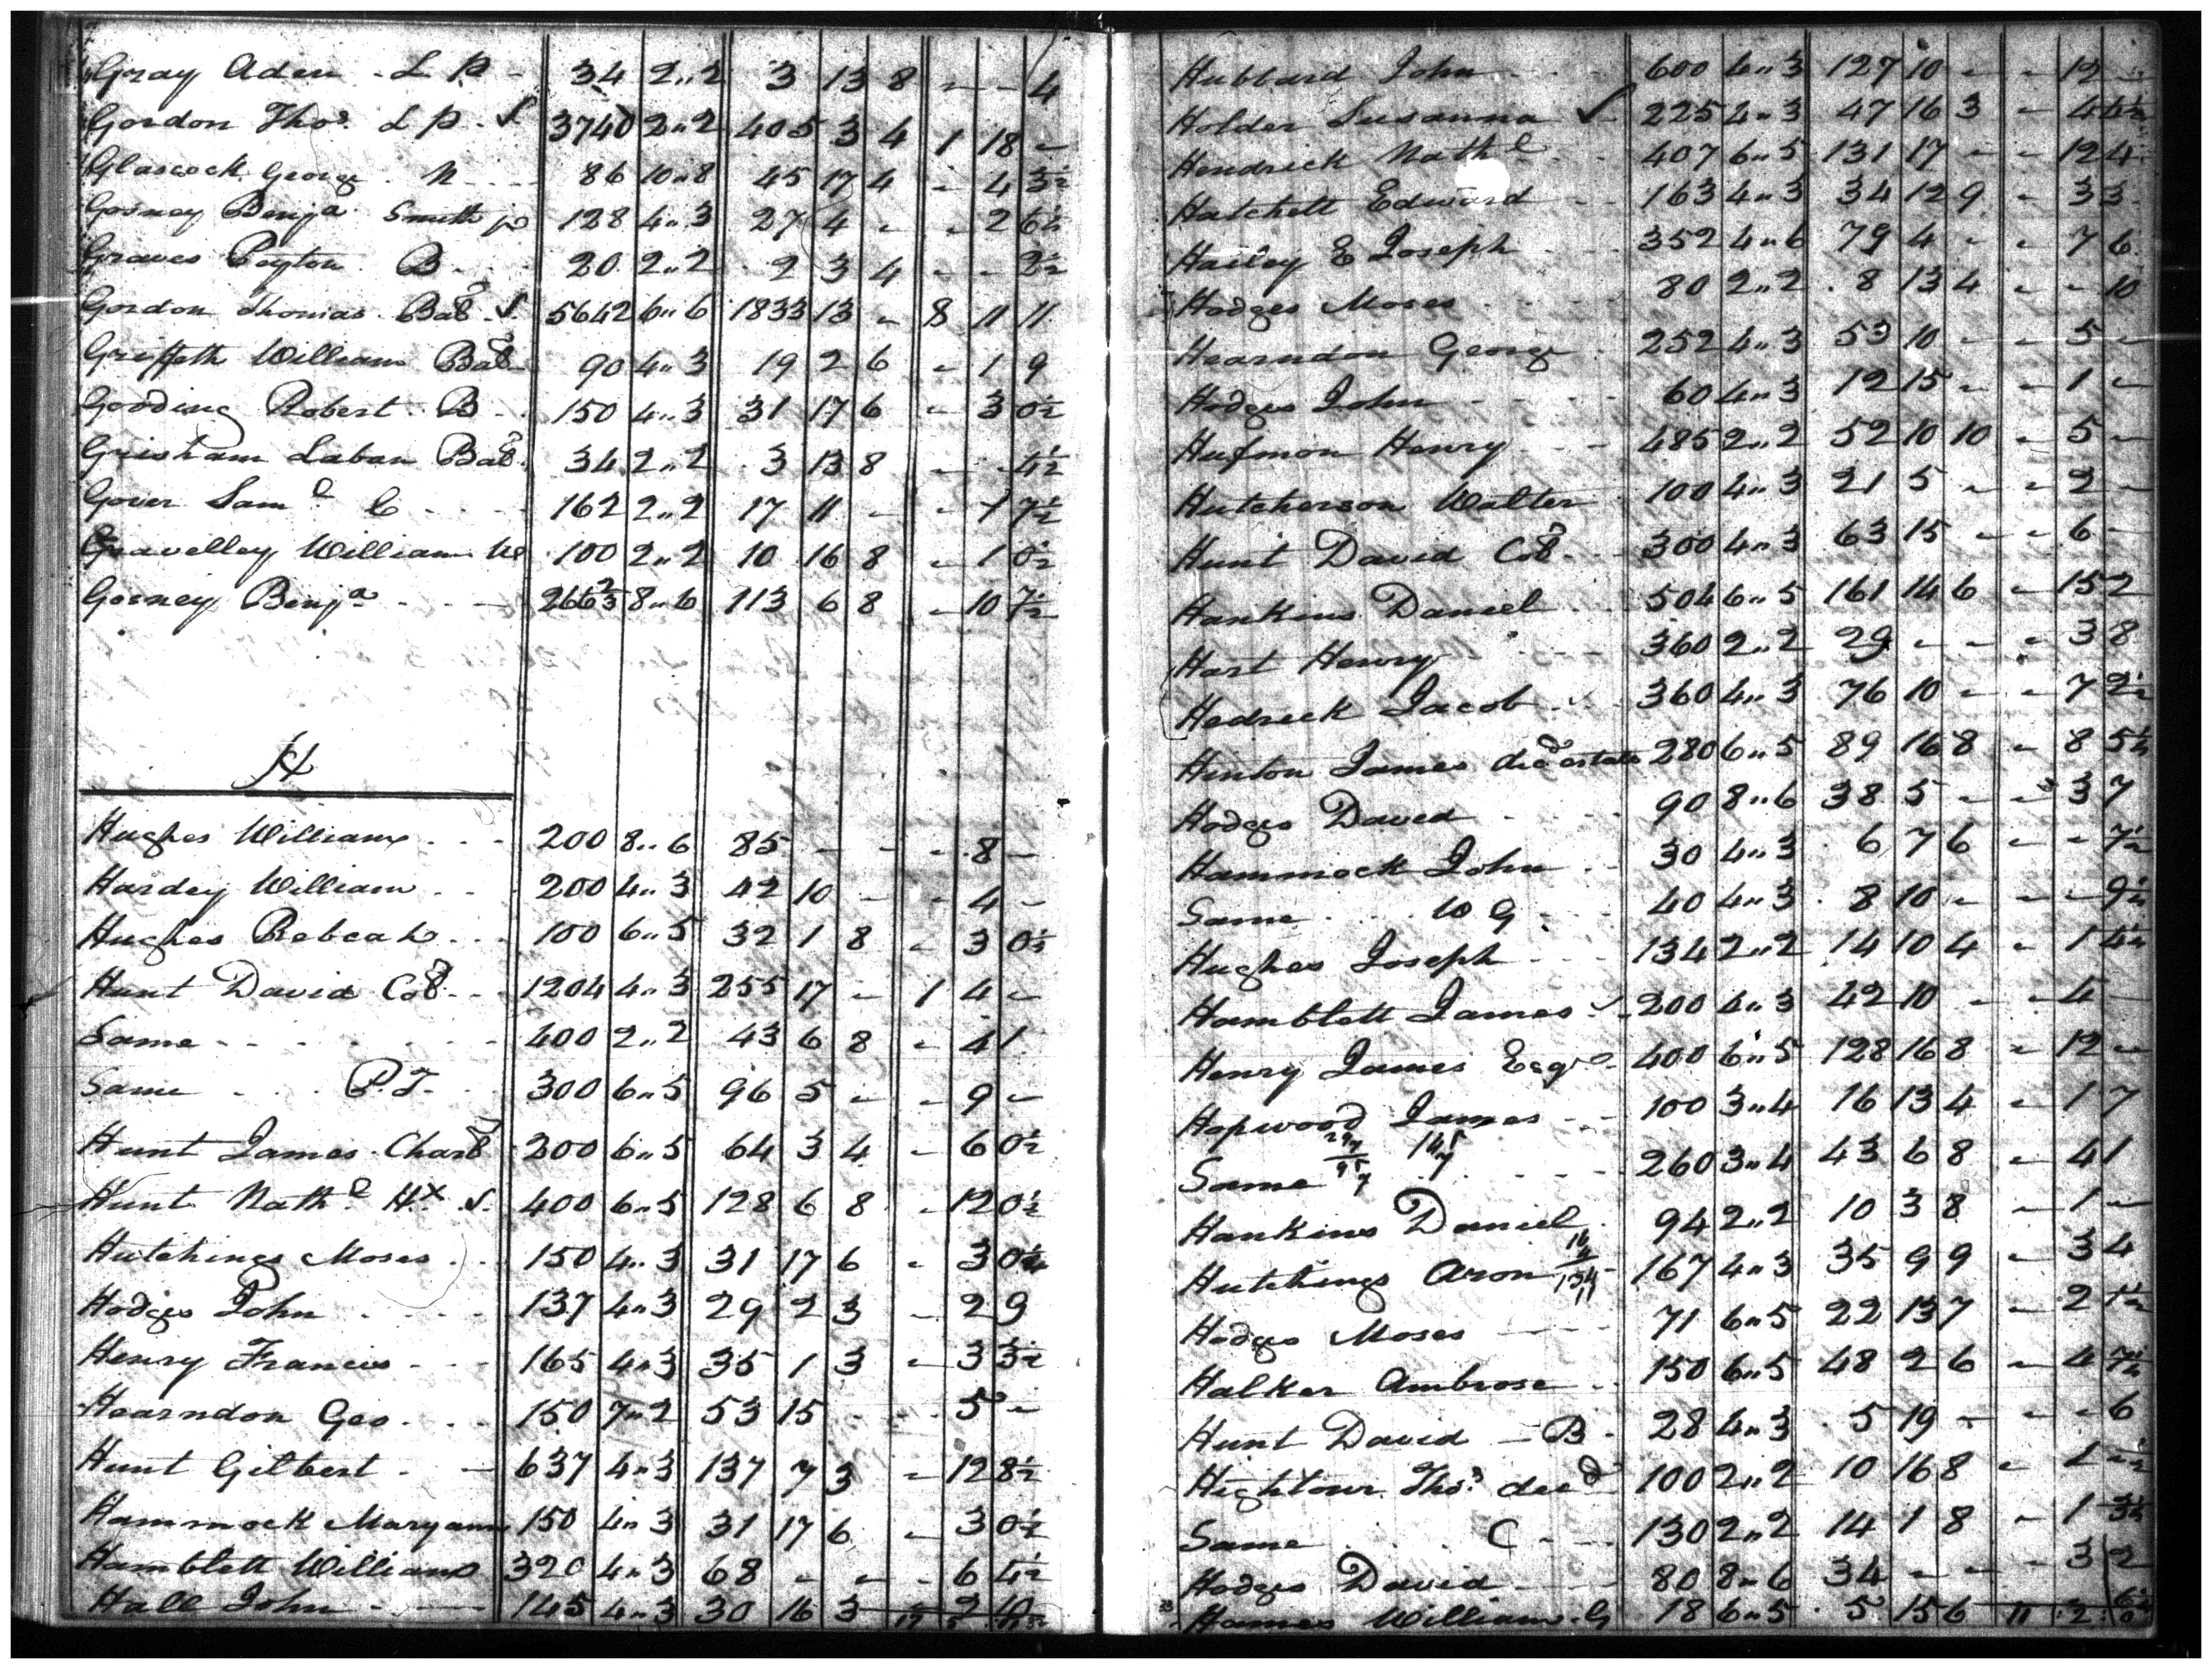 Gray Aden - L P - 34 2..2 3 13 8 - - 4
Gordon Thos. L P. ✓ 3740 2..2 405 3 4 1 18 -
Glascock George . N - - - 86 10..8 45 17 4 - 4 3½
Gosney Benja. Smith 128 4..3 27 4 - - 2 6½
Graves Peyton . B - - 20 2..2 2 3 4 - - 2½
Gordon Thomas ✓ 5642 6..6 1833 13 - 8 11 11
Griffeth William 90 4..3 19 2 6 - 1 9
Gooding Robert . B - 150 4..3 31 17 6 - 3 0½
Grisham Laban 34 2..2 3 13 8 - - 4½
Gover Saml. C - - - 162 2..2 17 11 - - 1 7½
Gravelley William 100 2..2 10 16 8 - 1 0½
Gosney Benja. - - - 266⅔ 8..6 113 6 8 - 10 7½
H
Hughes William . . - 200 8..6 85 - - - 8 -
Hardey William - - 200 4..3 42 10 - - 4 -
Hughes Rebcah . . . 100 6..5 32 1 8 - 3 0½
Hunt David - - 1204 4..3 255 17 - 1 4 -
Same - - - - - - 400 2..2 43 6 8 - 4 1
Same - . . P. T. - 300 6..5 96 5 - - 9 -
Hunt James 200 6..5 64 3 4 - 6 0½
Hunt Nathl. Hx ✓ 400 6..5 128 6 8 - 12 0½
Hutchings Moses . . . 150 4..3 31 17 6 - 3
Hodges John . - - - 137 4..3 29 2 3 - 2 9
Henry Francis - - - 165 4..3 35 1 3 - 3 3½
Hearndon Geo . . . 150 7..2 53 15 - - 5 -
Hunt Gilbert - - 637 4..3 137 7 3 - 12 8½
Hammock Maryann 150 4..3 31 17 6 - 3 0½
Hamblett William 320 4..3 68 - - - 6 4½
Hall John - - - 145 4..3 30 16 3 - 2 10
Hubbard John - - - 600 4..3 127 10 - - 12 -
Holder Susanna ✓ 225 4..3 47 16 3 - 4 4½
Hendrick Nathl. - - 407 6..5 131 17 - - 12 4
Hatchett Edward - - 163 4..3 34 12 9 - 3 3
Hailey E Joseph - - 352 4..6 79 4 - - 7 6
Hodges Moses - - - 80 2..2 8 13 4 - - 10
Hearndon George . 252 4..3 53 10 - - 5 -
Hodges John - - - - 60 4..3 12 15 - - 1 -
Hufmon Henry - - 485 2..2 52 10 10 - 5 -
Hutcherson Walter . 100 4..3 21 5 - - 2 -
Hunt David - - 300 4..3 63 15 - - 6 -
Hankins Daniel . . 504 6..5 161 14 6 - 15 2
Hart Henry - - - - 360 2..2 29 - - - 3 8
Hedreck Jacob . - 360 4..3 76 10 - - 7 2½
Hinton James decd estate 280 6..5 89 16 8 - 8 5½
Hodges David - - - 90 8..6 38 5 - - 3 7
Hammock John . . 30 4..3 6 7 6 - - 7½
Same . . . W G - 40 4..3 8 10 - - - 9½
Hughes Joseph - - - 134 2..2 14 10 4 - 1 4½
Hamblett James - 200 4..3 42 10 - - 4 -
Henry James Esqr. - 400 6..5 128 16 8 - 12 -
Hopwood James - - 100 3..4 16 13 4 - 1 7
Same - - - - 260 3..4 43 6 8 - 4 1
Hankins Daniel . 94 2..2 10 3 8 - 1 -
Hutchings Aron 167 4..3 35 9 9 - 3 4
Hodges Moses - - - 71 6..5 22 13 7 - 2 1½
Halker Ambrose . . 150 6..5 48 2 6 - 4 7½
Hunt David - B . 28 4..3 5 19 - - - 6
Hightour Thos. decd 100 2..2 10 16 8 - 1
Same . . . C - - - 130 2..2 14 1 8 - 1 3½
Hodges David - - - 80 8..6 34 - - - 3 2
Hames William . G 18 6..5 5 15 6